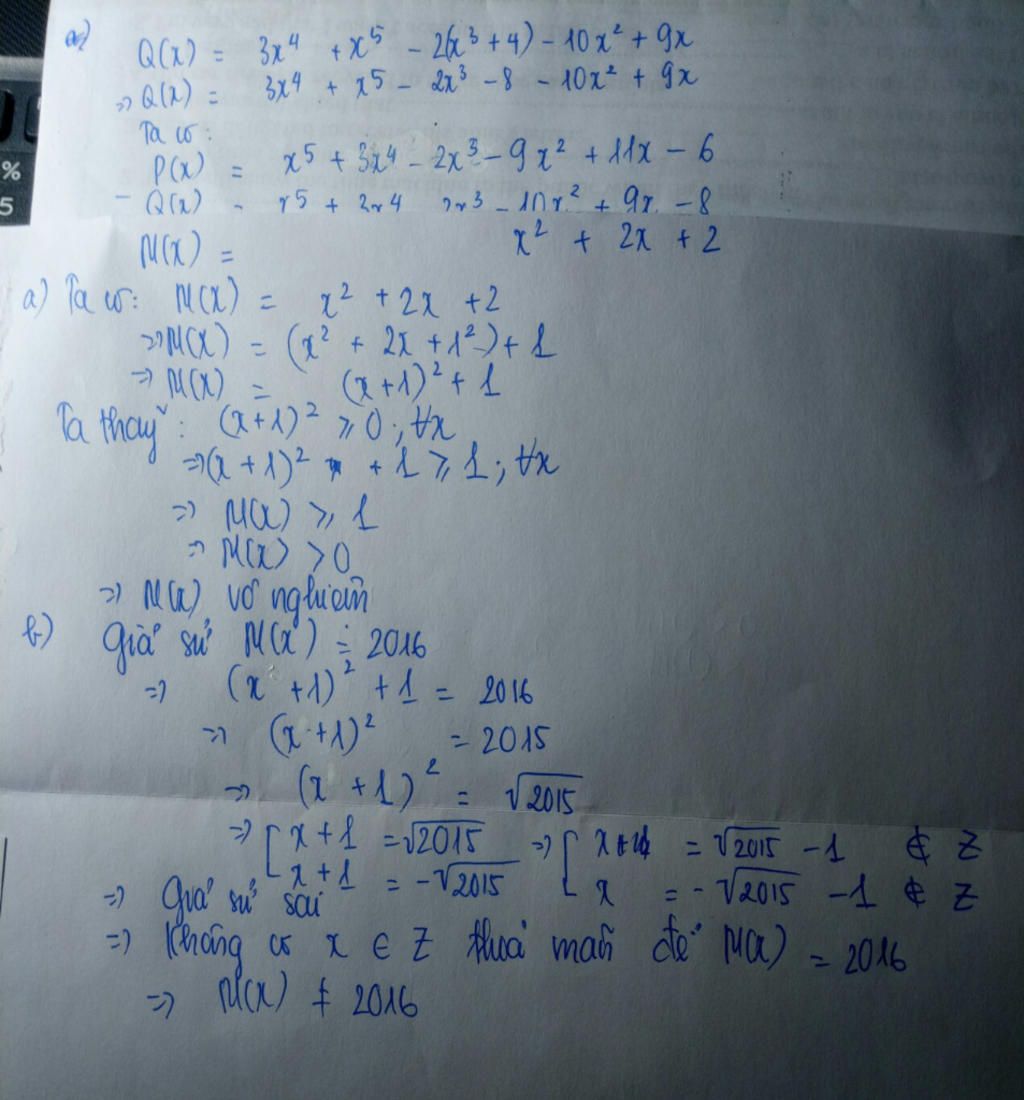 a)
Q(x) = 3x⁴ + x⁵ - 2(x³ + 4) - 10x² + 9x
=> Q(x) = 3x⁴ + x⁵ - 2x³ - 8 - 10x² + 9x
Ta có:
P(x) = x⁵ + 3x⁴ - 2x³ - 9x² + 11x - 6
- Q(x) = x⁵ + 3x⁴ - 2x³ - 10x² + 9x - 8
M(x) = x² + 2x + 2
a) Ta có: M(x) = x² + 2x + 2
=> M(x) = (x² + 2x + 1²) + 1
=> M(x) = (x+1)² + 1
Ta thấy: (x+1)² ≥ 0; ∀x
=> (x+1)² + 1 ≥ 1; ∀x
=> M(x) ≥ 1
=> M(x) > 0
=> M(x) vô nghiệm
b) Giả sử M(x) = 2016
=> (x+1)² + 1 = 2016
=> (x+1)² = 2015
=> (x+1)² = √2015
=> [ x+1 = √2015 => [ x = √2015 - 1 ∉ Z
x+1 = -√2015 x = -√2015 - 1 ∉ Z
=> Giả sử sai
=> Không có x ∈ Z thoả mãn để M(x) = 2016
=> M(x) ≠ 2016
%
5